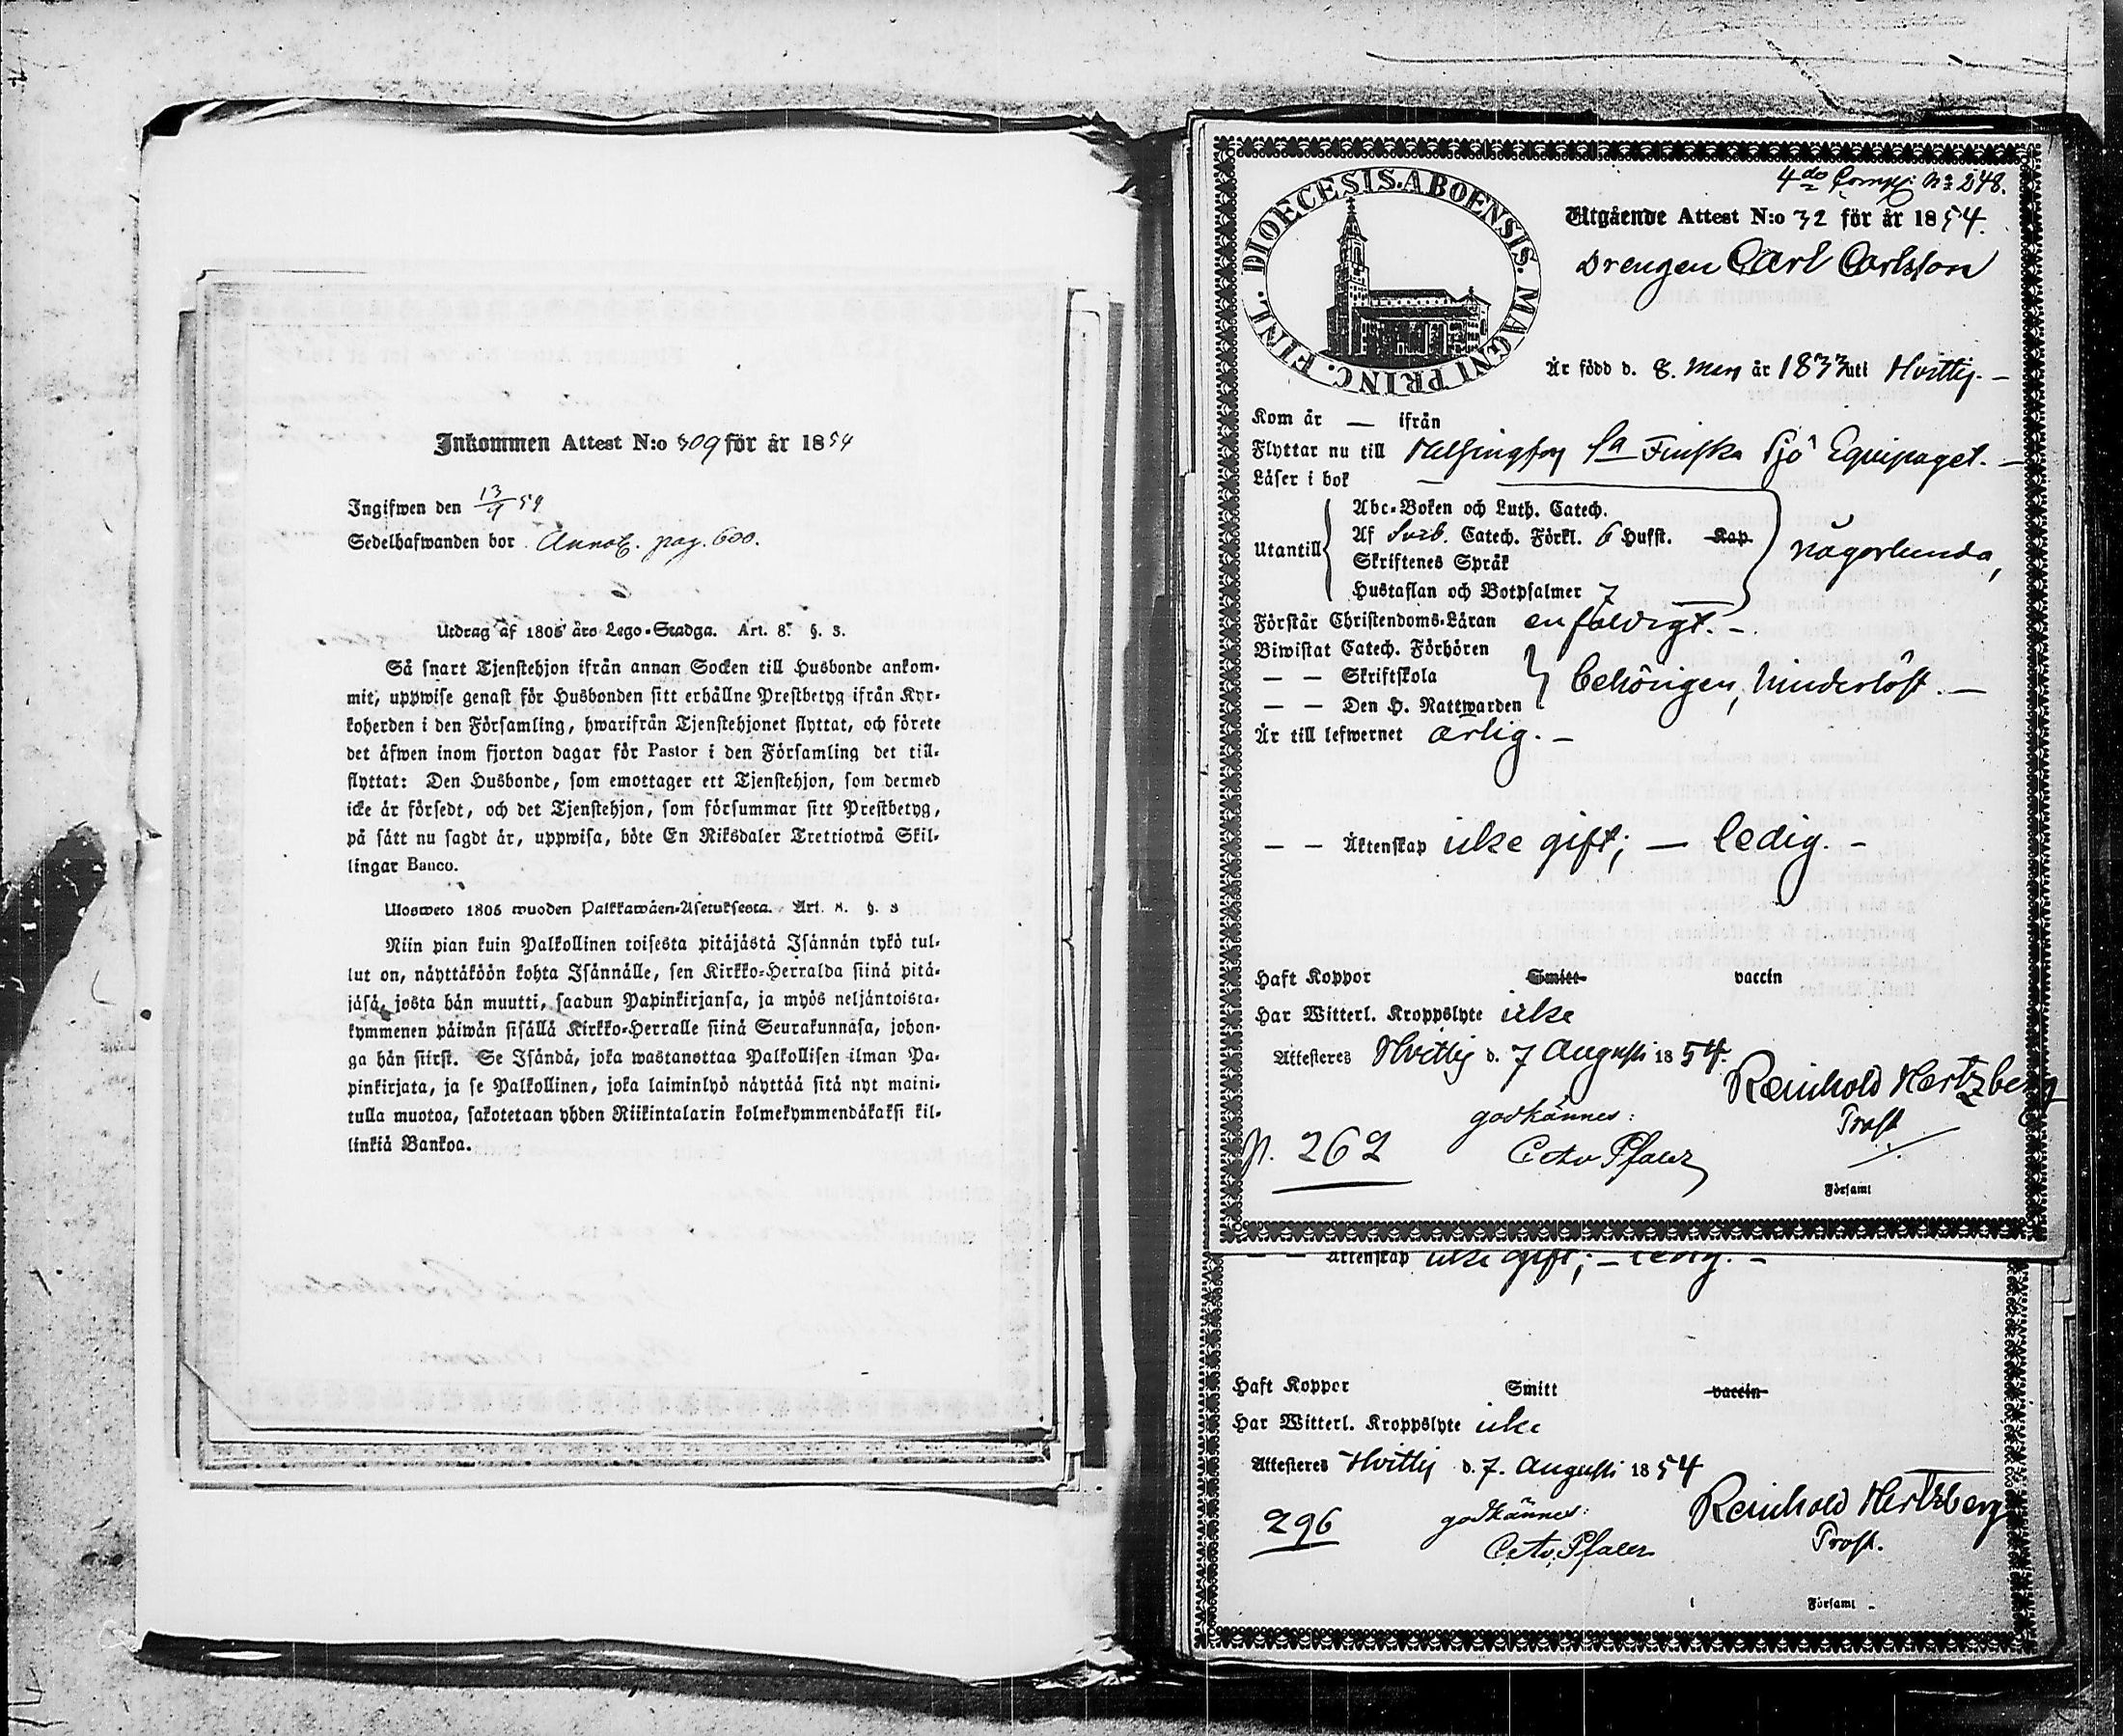 Inkommen Attest N:o 309 för år 1854
Ingifwen den 13/9 54
Sedelhafwanden bor Annot. pag. 600.
Utdrag af 1805 års Lego-Stadga. Art. 8. §. 3.
Så snart Tjenstehjon ifrån annan Socken till Husbonde ankom-
mit, uppwise genast för Husbonden sitt erhållne Prestbetyg ifrån Kyr-
koherden i den Församling, hwarifrån Tjenstehjonet flyttat, och förete
det äfwen inom fjorton dagar för Pastor i den Församling det till-
flyttat: Den Husbonde, som emottager ett Tjenstehjon, som dermed
icke är försedt, och det Tjenstehjon, som försummar sitt Prestbetyg,
på sätt nu sagdt är, uppwisa, böte En Riksdaler Trettiotwå Skil-
lingar Banco.
Ulosweto 1805 wuoden Palkkawäen-Asetuksesta. Art. 8. §. 3
Niin pian kuin Palkollinen toisesta pitäjästä Isännän tykö tul-
lut on, näyttäköön kohta Isännälle, sen Kirkko-Herralda siinä pitä-
jäsä, josta hän muutti, saadun Papinkirjansa, ja myös neljäntoista-
kymmenen päiwän sisällä Kirkko-Herralle siinä Seurakunnasa, johon-
ga hän siirst. Se Isändä, joka wastanottaa Palkollisen ilman Pa-
pinkirjata, ja se Palkollinen, joka laiminlyö näyttää sitä nyt maini-
tulla muotoa, sakotetaan yhden Riikintalarin kolmekymmendäkaksi kil-
linkiä Bankoa.
4do Comp: No 248.
DIOECESIS. ABOENSIS. MAGNI PRINC. FINL.
Utgående Attest N:o 32 för år 1854.
Drengen Carl Carlsson
Är född d. 8. Maij år 1833 uti Hvittis. —
Kom år — ifrån
Flyttar nu till Helsingfors 1a Finska Sjö Equipaget. —
Läser i bok —
Utantill
Abc-Boken och Luth. Catech.
Af Svib. Catech. Förkl. 6 Hufst. Kap
Skriftenes Språk
Hustaflan och Botpsalmer 7
någorlunda,
Förstår Christendoms-Läran enfaldigt. —
Biwistat Catech. Förhören
— — Skriftskola
— — Den H. Nattwarden
behörigen, hinderlöst. —
Är till lefwernet ärlig. —
— — Äktenskap icke gift; — ledig. —
Haft Koppor Smitt vaccin
Har Witterl. Kroppslyte icke
Attesteres Hvittis d. 7 Augusti 1854.
Reinhold Hertzberg
Prost
godkännes:
p. 262
Församl
— — Äktenskap icke gift; — ledig. —
Haft Koppor Smitt vaccin
Har Witterl. Kroppslyte icke
Attesteres Hvittis d. 7. Augusti 1854
Reinhold Hertzberg
Prost.
296
godkännes:
Församl